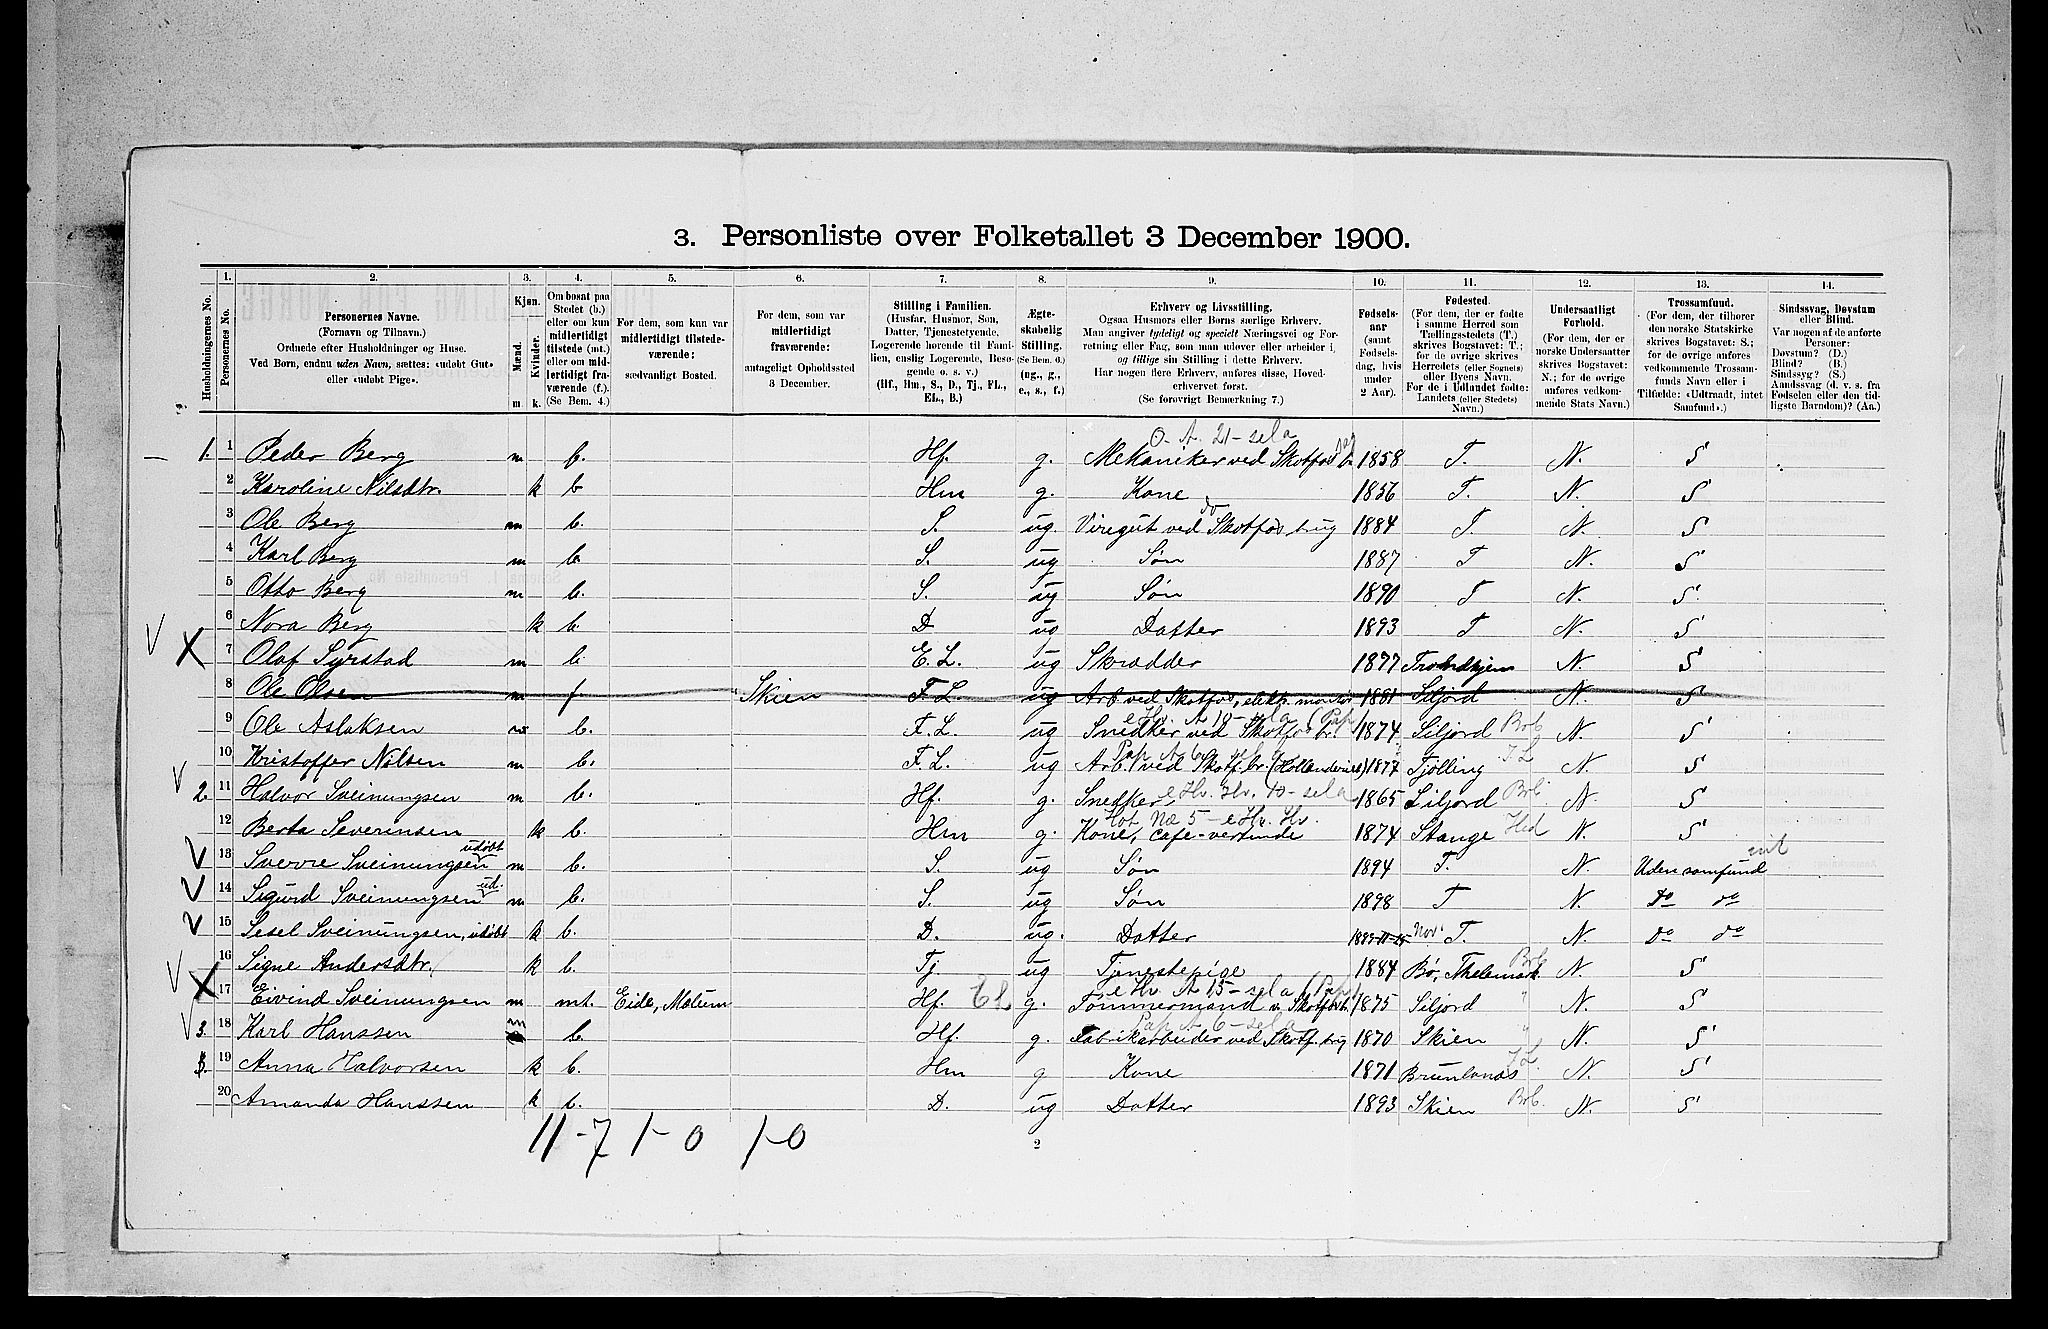 3. Personliste over Folketallet 3 December 1900.
Husholdningernes No.
1. Personernes No.
2. Personernes Navne.
(Fornavn og Tilnavn.)
Ordnede efter Husholdninger og Huse.
Ved Børn, endnu uden Navn, sættes: «udøbt Gut» eller «udøbt Pige».
3. Kjøn.
Mænd. Kvinder.
m. k.
4. Om bosat paa Stedet (b.) eller om kun midlertidigt tilstede (mt.) eller om midlertidigt fraværende (f.) (Se Bem. 4.)
5. For dem, som kun var midlertidigt tilstedeværende:
sædvanligt Bosted.
6. For dem, som var midlertidigt fraværende:
antageligt Opholdssted 3 December.
7. Stilling i Familien.
(Husfar, Husmor, Søn, Datter, Tjenestetyende, Logerende hørende til Familien, enslig Logerende, Besøgende o. s. v.)
(Hf., Hm., S., D., Tj., FL., EL., B.)
8. Ægteskabelig Stilling.
(Se Bem. 6.)
(ug., g., e., s., f.)
9. Erhverv og Livsstilling.
Ogsaa Husmors eller Børns særlige Erhverv.
Man angiver tydeligt og specielt Næringsvei og Forretning eller Fag, som man udøver eller arbeider i, og tillige sin Stilling i dette Erhverv.
Har nogen flere Erhverv, anføres disse, Hovederhvervet først.
(Se forøvrigt Bemærkning 7.)
10. Fødselsaar
(samt Fødselsdag, hvis under 2 Aar).
11. Fødested.
(For dem, der er fødte i samme Herred som Tællingsstedets (T.) skrives Bogstavet: T.; for de øvrige skrives Herredets (eller Sognets) eller Byens Navn.
For de i Udlandet fødte: Landets (eller Stedets) Navn.)
12. Undersaatligt Forhold.
(For dem, der er norske Undersaatter skrives Bogstavet: N.; for de øvrige anføres vedkommende Stats Navn.)
13. Trossamfund.
(For dem, der tilhører den norske Statskirke skrives Bogstavet: S.; for de øvrige anføres vedkommende Trossamfunds Navn eller i Tilfælde: «Udtraadt, intet Samfund».)
14. Sindssvag, Døvstum eller Blind.
Var nogen af de anførte Personer:
Døvstum? (D.)
Blind? (B.)
Sindssyg? (S.)
Aandssvag (d. v. s. fra Fødselen eller den tidligste Barndom)? (Aa.)
1. 1 Peder Berg m b. Hf. g. Mekaniker ved Skotfos b. 1858 T. N. S
2 Karoline Nilsdtr. k b Hm g. Kone 1856 T. N. S
3 Ole Berg m b. S. ug. Viregut ved Skotfos brug 1884 T. N. S
4 Karl Berg m b. S. ug Søn 1887 T N. S
5 Otto Berg m b. S. ug Søn 1890 T N. S
6 Nora Berg k b. D ug Datter 1893 T N. S
7 Olaf Syrstad m b E. L. ug Skrædder 1877 Trondhjem N. S
8 Ole Olsen m f Skien F. L ug Arb ved Skotfos, elektr. montør 1881 Siljord N. S
9 Ole Aslaksen m b. F. L. ug Snedker ved Skotfos br. 1874 Siljord Brb N. S
10 Kristoffer Nilsen m b. F. L. ug Arb. ved Skotf. br. (Hollænderiet) 1877 Tjølling JL N. S
2. 11 Halvor Sveinungsen m b. Hf. g. Snedker 1865 Siljord Brb N. S
12 Berta Severinsen k b. Hm g. Kone, cafe-vertinde 1874 Stange Hed N. S
13 Sverre Sveinungsen udøbt m b. S. ug Søn 1894 T. N. Uden samfund
14 Sigurd Sveinungsen ud. m b. S. ug Søn 1898 T N. do do
15 Sesel Sveinungsen, udøbt k b. D. ug. Datter Nov. T. N. do do
16 Signe Andersdtr. k b. Tj. ug Tjenestepige 1884 Bø, Thelemark Brb N. S
17 Eivind Sveinungsen m mt. Eide, Melum Hf. EL g. Tømmermand v. Skotfos b. 1875 Siljord " N. S
3. 18 Karl Hanssen m b. Hf. g. Fabrikarbeider ved Skotf. brug 1870 Skien " N. S
19 Anna Halvorsen k b. Hm g Kone 1871 Brunlanæs JL N. S
20 Amanda Hanssen k b. D. ug Datter 1893 Skien Brb. N. S
11-7 1-0 1-0
2